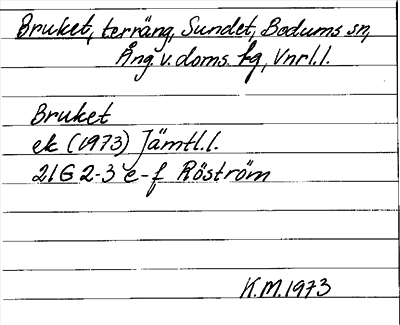 Bruket, terräng, Sundet, Bodums sn,
Ång. v. doms. fg, Vnrl.l.
Bruket
ek (1973) Jämtl.l.
21G 2-3 e-f Röström
K.M.1973